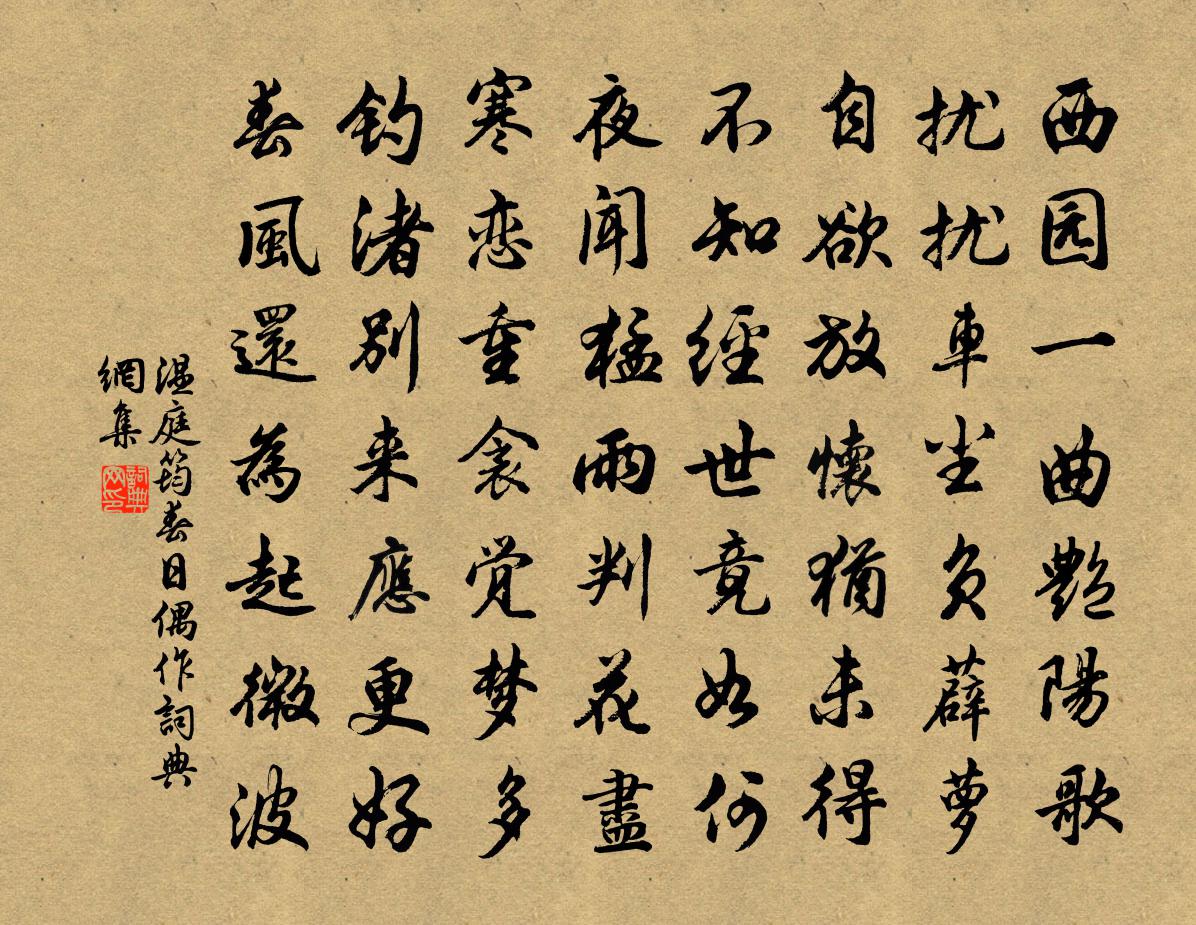 西园一曲艷陽歌
扰扰車尘负薜萝
自欲放懷猶未得
不知經世竟如何
夜闻猛雨判花盡
寒恋重衾觉梦多
钓渚别来應更好
春風還為起微波
温庭筠春日偶作詞典
網集
詞典
网印